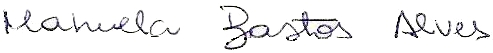 Manuela Bastos Alves